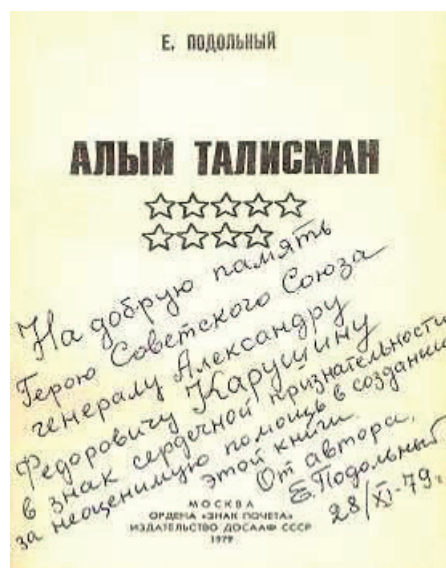 Е. ПОДОЛЬНЫЙ
АЛЫЙ ТАЛИСМАН
На добрую память
Герою Советского Союза
генералу Александру
Федоровичу Карушину
в знак сердечной признательности
за неоценимую помощь в создании
этой книги.
От автора.
Е. Подольный
28/XI-79г.
МОСКВА
ОРДЕНА «ЗНАК ПОЧЕТА»
ИЗДАТЕЛЬСТВО ДОСААФ СССР
1979